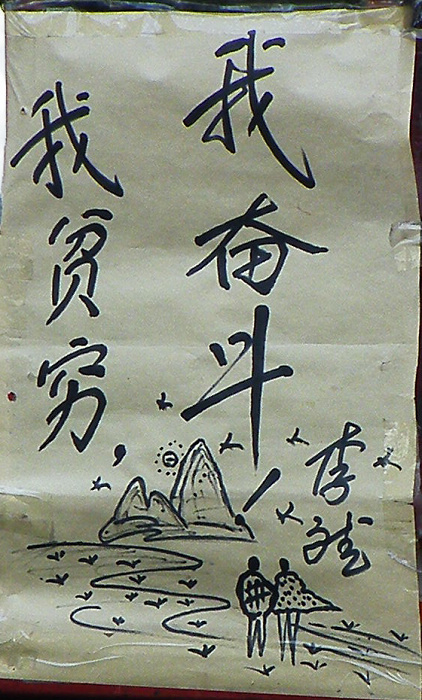 我贫穷，
我奋斗！
李